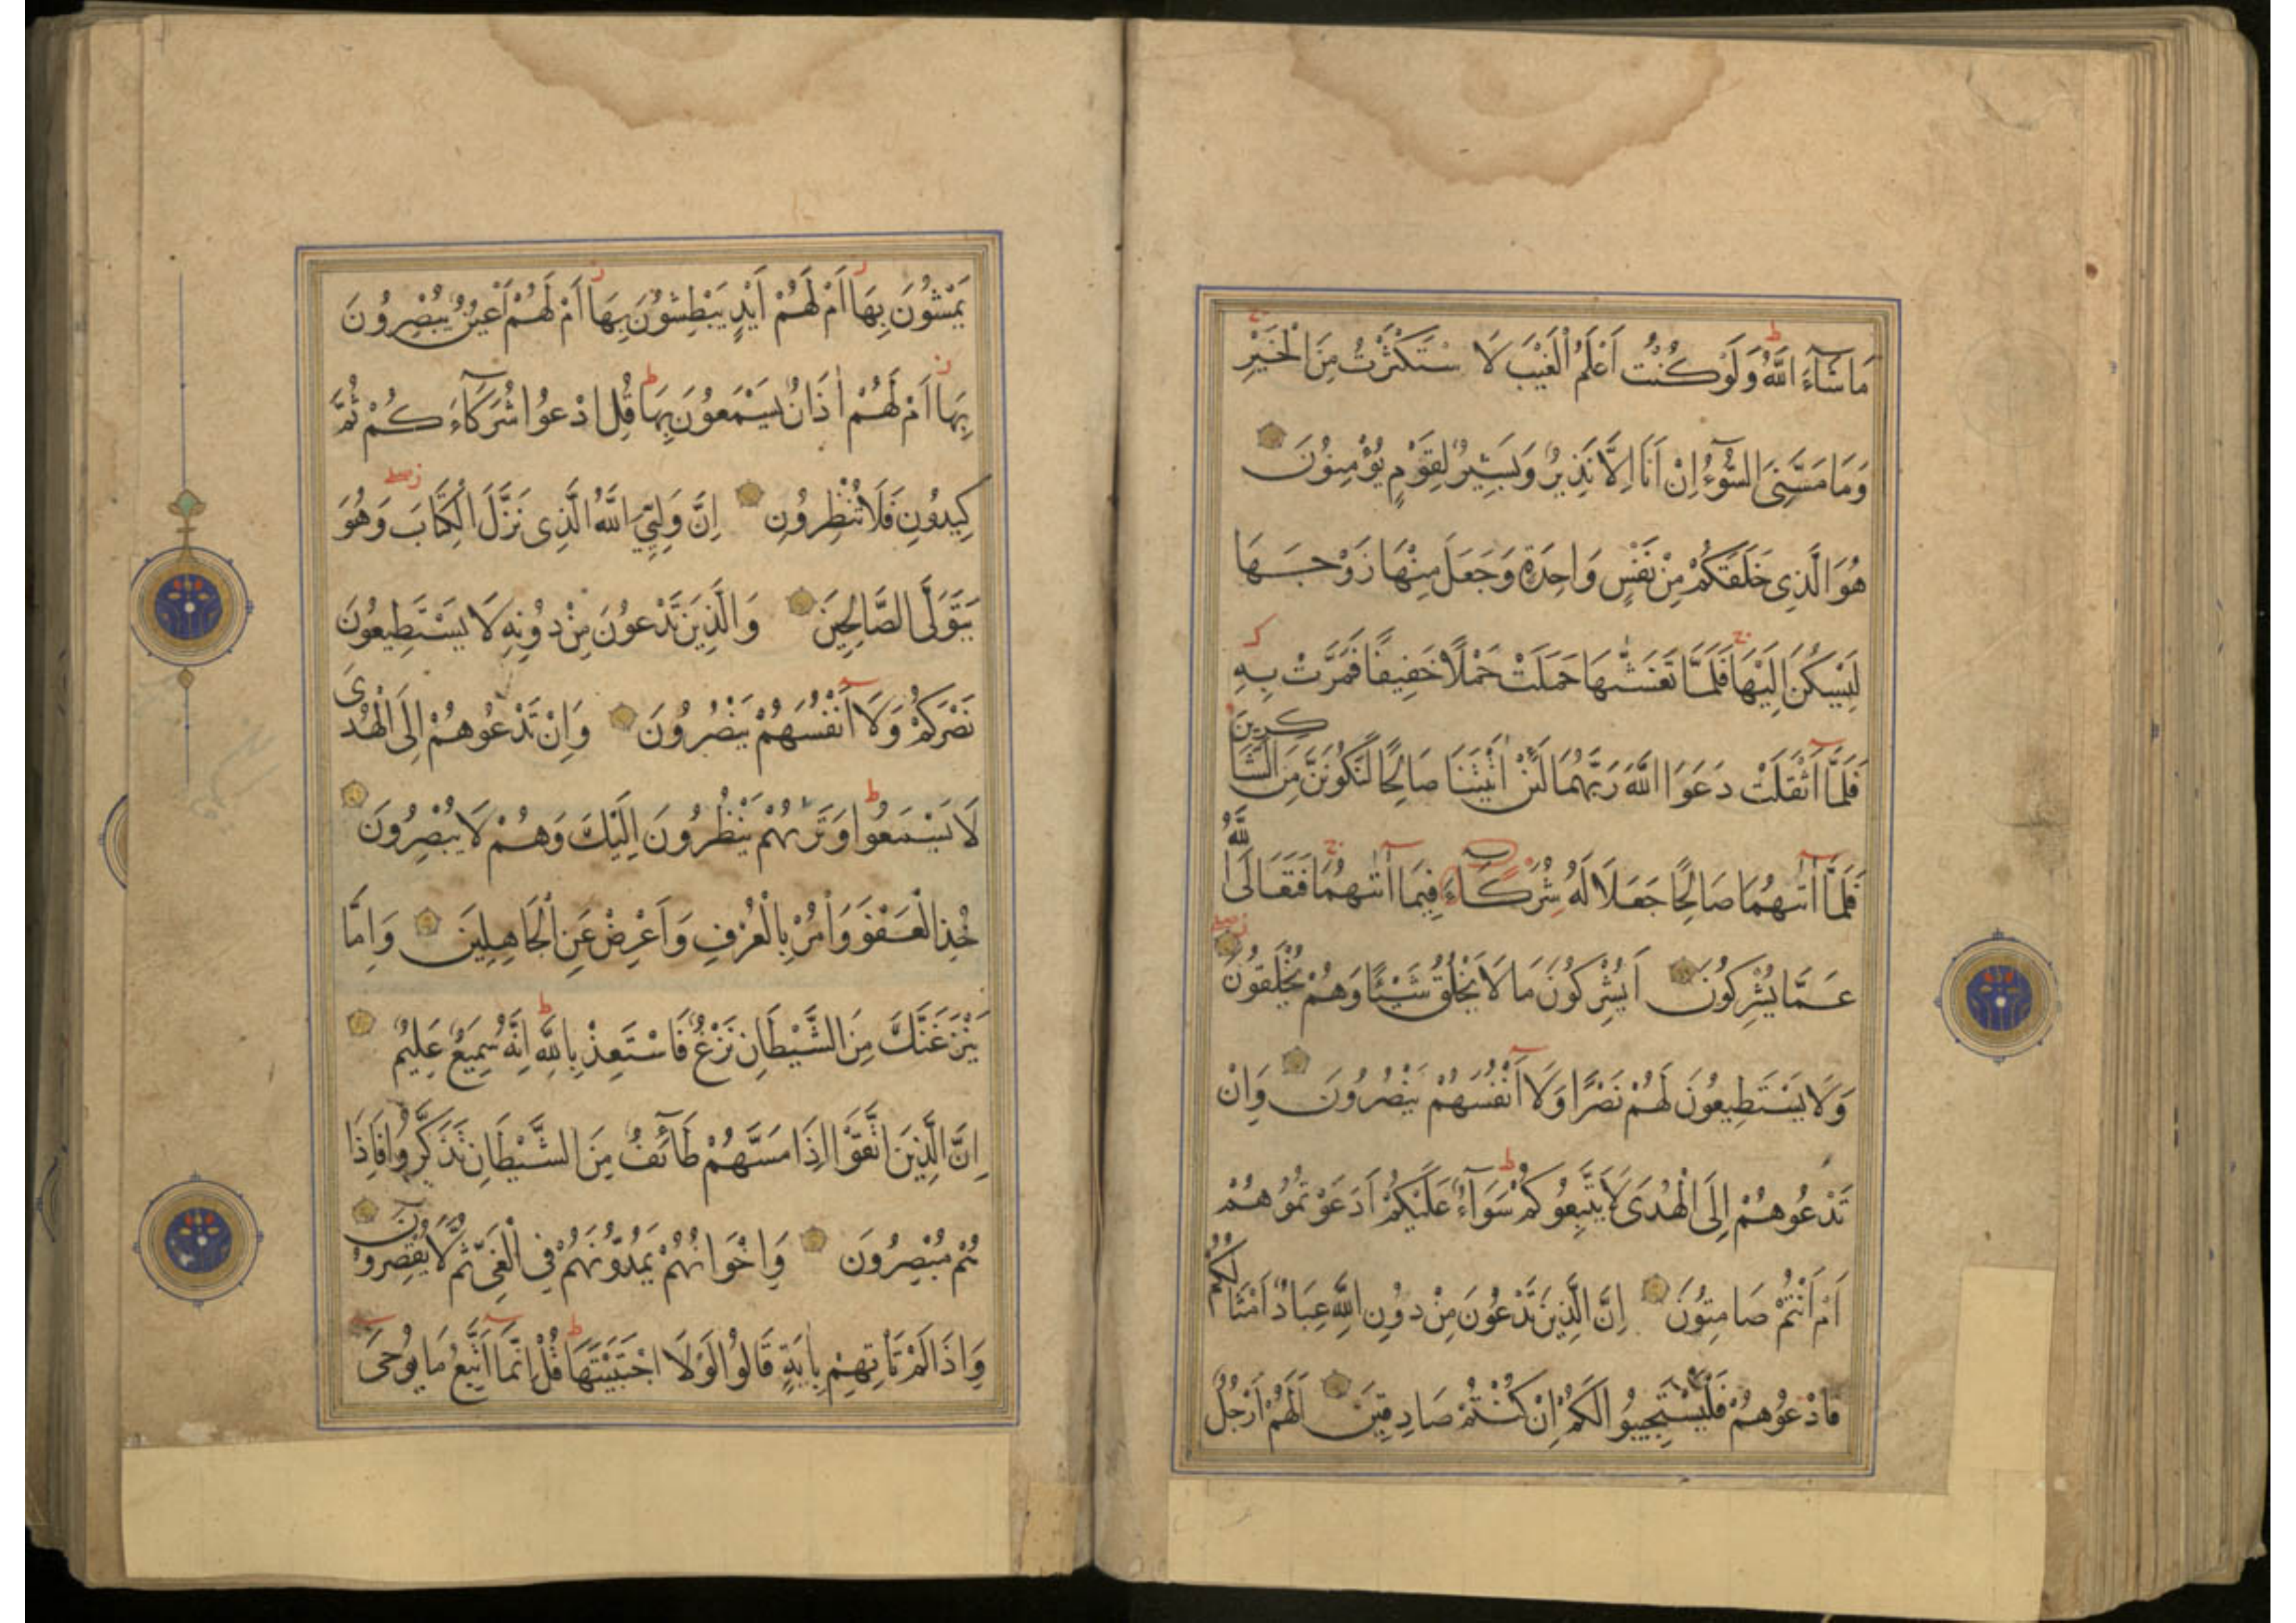 مَا شَآءَ اللّٰهُ وَلَوْ كُنْتُ اَعْلَمُ الْغَيْبَ لَا سْتَكْثَرْتُ مِنَ الْخَيْرِ
وَمَا مَسَّنِىَ السُّوٓءُ اِنْ اَنَا اِلَّا نَذِيرٌ وَبَشِيرٌ لِقَوْمٍ يُؤْمِنُونَ
هُوَ الَّذِى خَلَقَكُمْ مِنْ نَفْسٍ وَاحِدَةٍ وَجَعَلَ مِنْهَا زَوْجَهَا
لِيَسْكُنَ اِلَيْهَا فَلَمَّا تَغَشّٰىهَا حَمَلَتْ حَمْلًا خَفِيفًا فَمَرَّتْ بِهِ
فَلَمَّآ اَثْقَلَتْ دَعَوَا اللّٰهَ رَبَّهُمَا لَئِنْ اٰتَيْتَنَا صَالِحًا لَنَكُونَنَّ مِنَ الشَّاكِرِينَ
فَلَمَّآ اٰتٰىهُمَا صَالِحًا جَعَلَا لَهُ شُرَكَآءَ فِيمَآ اٰتٰىهُمَا فَتَعَالَى اللّٰهُ
عَمَّا يُشْرِكُونَ اَيُشْرِكُونَ مَا لَا يَخْلُقُ شَيْئًا وَهُمْ يُخْلَقُونَ
وَلَا يَسْتَطِيعُونَ لَهُمْ نَصْرًا وَلَآ اَنْفُسَهُمْ يَنْصُرُونَ وَاِنْ
تَدْعُوهُمْ اِلَى الْهُدَى لَا يَتَّبِعُوكُمْ سَوَآءٌ عَلَيْكُمْ اَدَعَوْتُمُوهُمْ
اَمْ اَنْتُمْ صَامِتُونَ اِنَّ الَّذِينَ تَدْعُونَ مِنْ دُونِ اللّٰهِ عِبَادٌ اَمْثَالُكُمْ
فَادْعُوهُمْ فَلْيَسْتَجِيبُوا لَكُمْ اِنْ كُنْتُمْ صَادِقِينَ اَلَهُمْ اَرْجُلٌ
يَمْشُونَ بِهَا اَمْ لَهُمْ اَيْدٍ يَبْطِشُونَ بِهَا اَمْ لَهُمْ اَعْيُنٌ يُبْصِرُونَ
بِهَا اَمْ لَهُمْ اٰذَانٌ يَسْمَعُونَ بِهَا قُلِ ادْعُوا شُرَكَآءَكُمْ ثُمَّ
كِيدُونِ فَلَا تُنْظِرُونِ اِنَّ وَلِيِّىَ اللّٰهُ الَّذِى نَزَّلَ الْكِتَابَ وَهُوَ
يَتَوَلَّى الصَّالِحِينَ وَالَّذِينَ تَدْعُونَ مِنْ دُونِهِ لَا يَسْتَطِيعُونَ
نَصْرَكُمْ وَلَآ اَنْفُسَهُمْ يَنْصُرُونَ وَاِنْ تَدْعُوهُمْ اِلَى الْهُدَى
لَا يَسْمَعُوا وَتَرٰىهُمْ يَنْظُرُونَ اِلَيْكَ وَهُمْ لَا يُبْصِرُونَ
خُذِ الْعَفْوَ وَاْمُرْ بِالْعُرْفِ وَاَعْرِضْ عَنِ الْجَاهِلِينَ وَاِمَّا
يَنْزَغَنَّكَ مِنَ الشَّيْطَانِ نَزْغٌ فَاسْتَعِذْ بِاللّٰهِ اِنَّهُ سَمِيعٌ عَلِيمٌ
اِنَّ الَّذِينَ اتَّقَوْا اِذَا مَسَّهُمْ طَآئِفٌ مِنَ الشَّيْطَانِ تَذَكَّرُوا فَاِذَا
هُمْ مُبْصِرُونَ وَاِخْوَانُهُمْ يَمُدُّونَهُمْ فِى الْغَىِّ ثُمَّ لَا يُقْصِرُونَ
وَاِذَا لَمْ تَاْتِهِمْ بِاٰيَةٍ قَالُوا لَوْلَا اجْتَبَيْتَهَا قُلْ اِنَّمَآ اَتَّبِعُ مَا يُوحَىٓ